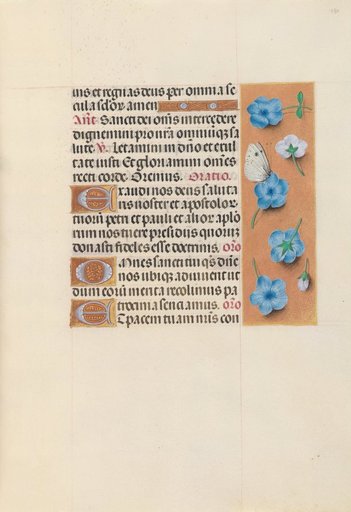 uis et regnas deus per omnia se
cula seclor amen
Ant Sancti dei oms intercedere
dignemini pro nra omniuqs sa
lute V. Letamini in dno et exul
tate iusti Et gloriamini omes
recti corde. Oremus. Oratio.
Exaudi nos deus saluta
ris noster et apostolor
tuorum petri et pauli et alior aplo
rum nos tuere presidiis quorum
donasti fideles esse doctrinis. oro
Omnes sancti tui qs dne
nos ubiqs adiuuent ut
dum eoru merita recolimus pa
trocinia senciamus. oro
Et pacem tuam nris con